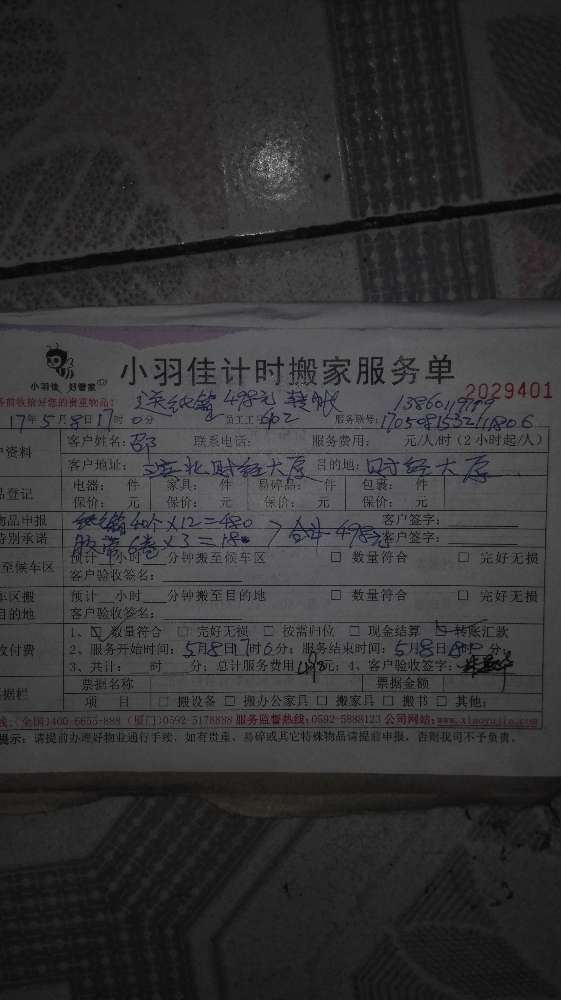 小羽佳 好管家
小羽佳计时搬家服务单
2029401
务前收拾好您的贵重物品: 送纸箱 498元 转账
17年5月8日17时0分 员工工号: 602 服务联号: 1705081532111806
户资料 客户姓名: 邵 联系电话: 服务费用: 元/人/时 (2小时起/人)
客户地址: 湖北 财经大厦 目的地: 财经大厦
品登记 电器: 件 家具: 件 易碎品: 件 包裹: 件
保价: 元 保价: 元 保价: 元 保价: 元
物品申报 纸箱40个×12=480 客户签字:
特别承诺 胶带6卷×3=18 合计 498元 客户签字:
至候车区 预计 小时 分钟搬至候车区 □ 数量符合 □ 完好无损
客户验收签名:
车区搬 预计 小时 分钟搬至目的地 □ 数量符合 □ 完好无损
目的地 客户验收签名:
收付费 1、☑数量符合 □ 完好无损 □ 按需归位 □ 现金结算 ☑ 转账汇款
2、服务开始时间: 5月8日17时6分; 服务结束时间: 5月8日18时0分;
3、共计: 时 分; 总计服务费用 498元; 4、客户验收签字:
票据栏 票据名称 票据金额
项 目 □ 搬设备 □ 搬办公家具 □ 搬家具 □ 搬书 □ 其他:
线: (全国)400-6655-888 (厦门)0592-5178888 服务监督热线: 0592-5888123 公司网站: www.xiaoyujia.com
提示: 请提前办理好物业通行手续, 如有贵重、易碎或其它特殊物品请提前申报, 否则我司不予负责。